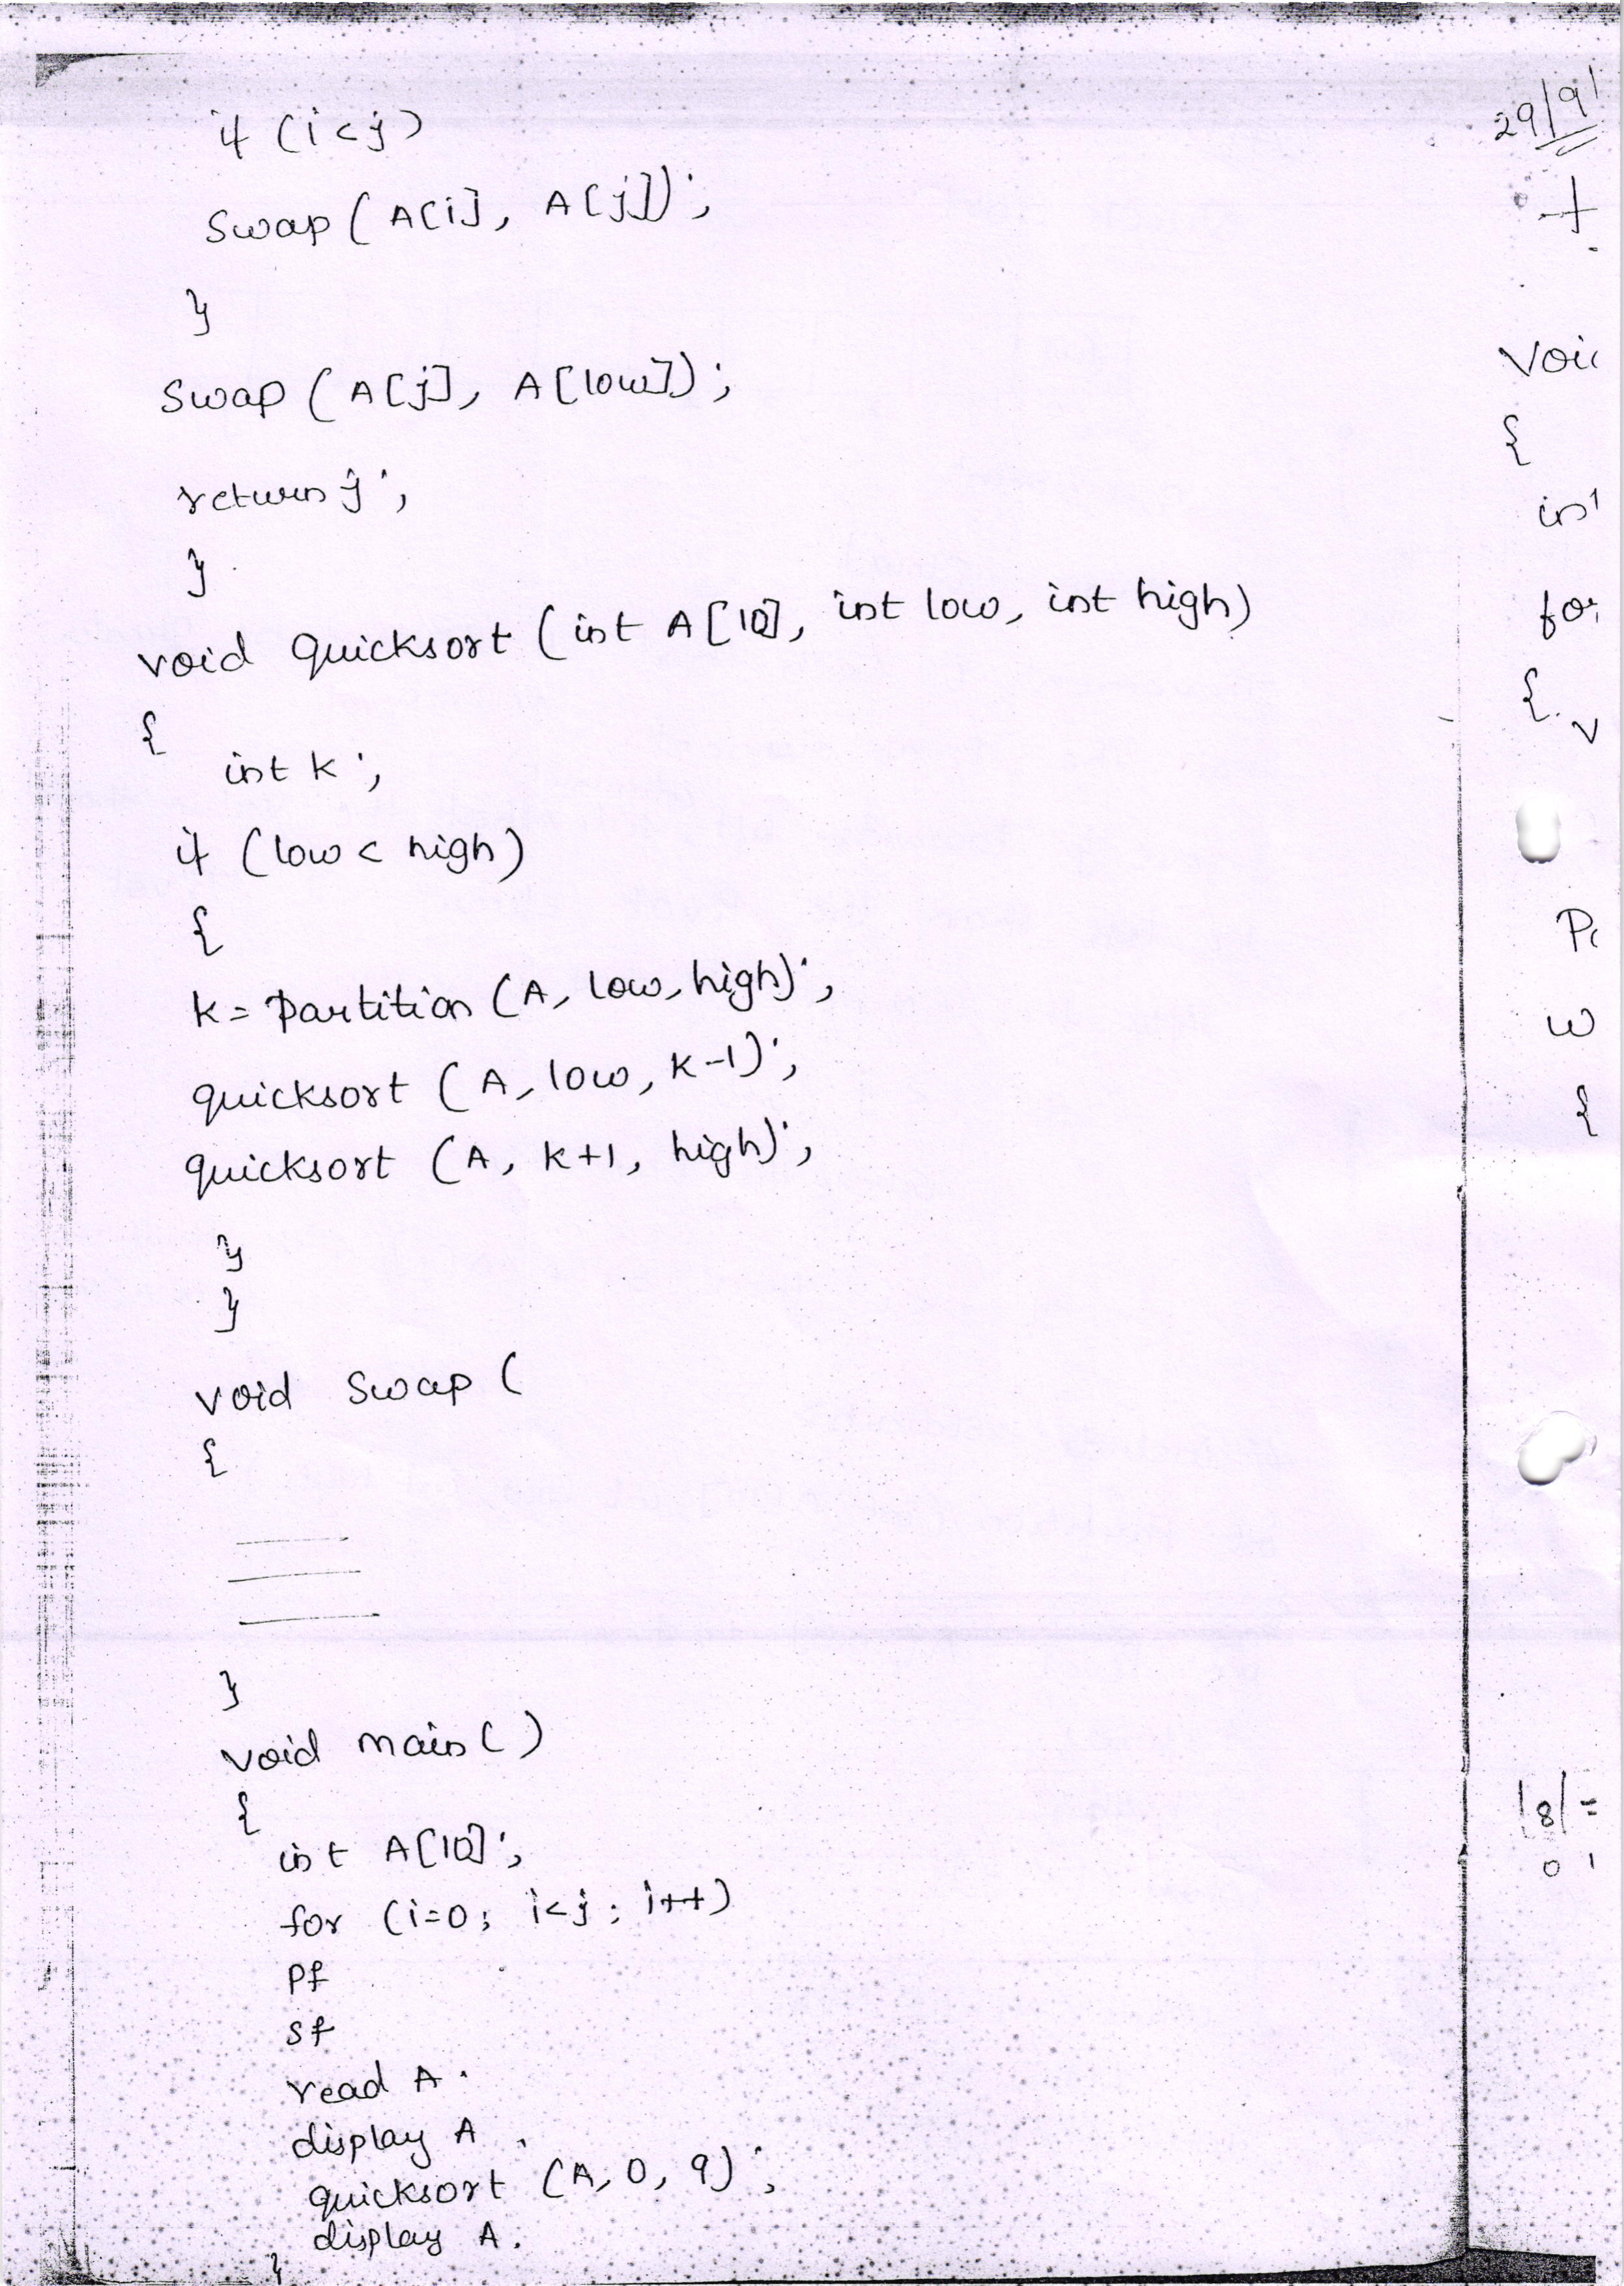 if (i<j)
swap (A[i], A[j]);
}
swap (A[j], A[low]);
return j;
}
void quicksort (int A[10], int low, int high)
{
int k;
if (low < high)
{
k = partition (A, low, high);
quicksort (A, low, k-1);
quicksort (A, k+1, high);
}
}
void swap (
{
}
void main ( )
{
int A[10];
for (i=0; i<j; i++)
pf
sf
read A.
display A.
quicksort (A, 0, 9);
display A.
}
29/9/
{
{
{